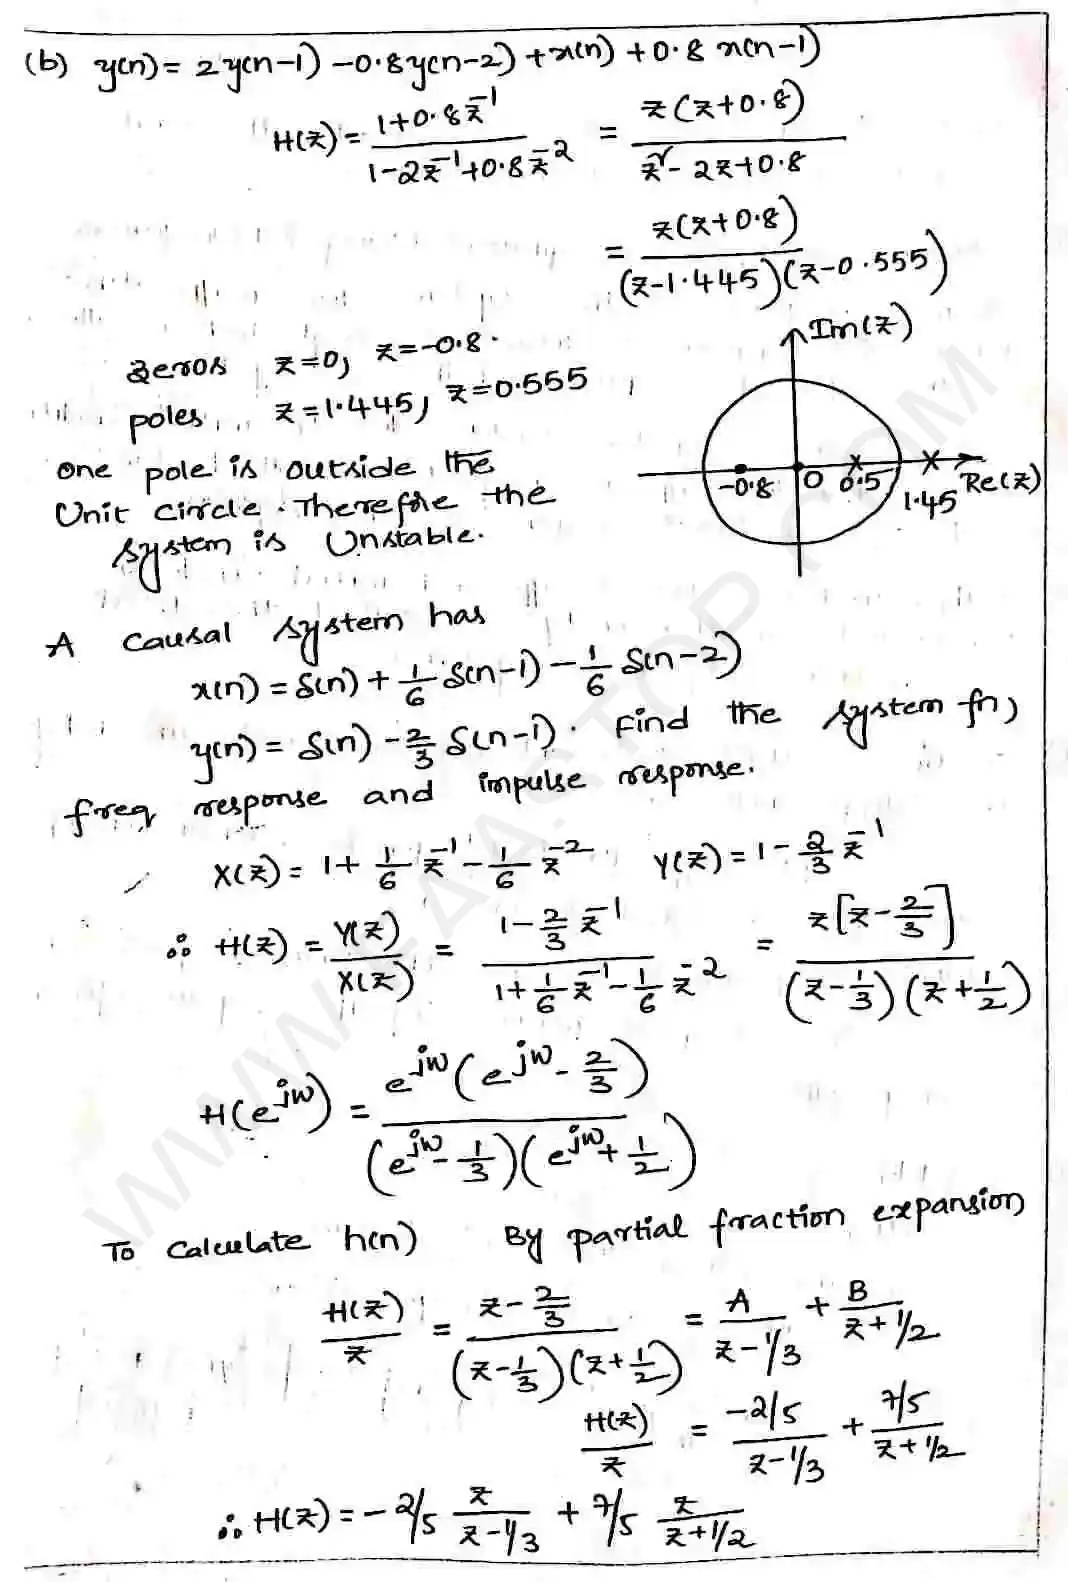 (b) y(n) = 2y(n-1) -0.8y(n-2) + x(n) + 0.8 x(n-1)
H(z) = (1+0.8z⁻¹)/(1-2z⁻¹+0.8z⁻²) = z(z+0.8)/(z²-2z+0.8)
= z(z+0.8)/((z-1.445)(z-0.555))
Im(z)
zeros z=0, z=-0.8.
poles z=1.445, z=0.555
-0.8 0 0.5 1.45 Re(z)
one pole is outside the
Unit circle. Therefore the
system is Unstable.
A causal system has
x(n) = δ(n) + 1/6 δ(n-1) - 1/6 δ(n-2)
y(n) = δ(n) - 2/3 δ(n-1). Find the system fn,
freq response and impulse response.
X(z) = 1 + 1/6 z⁻¹ - 1/6 z⁻² Y(z) = 1 - 2/3 z⁻¹
∴ H(z) = Y(z)/X(z) = (1 - 2/3 z⁻¹)/(1 + 1/6 z⁻¹ - 1/6 z⁻²) = z[z - 2/3]/((z - 1/3)(z + 1/2))
H(e^jw) = e^jw(e^jw - 2/3)/((e^jw - 1/3)(e^jw + 1/2))
To calculate h(n) By partial fraction expansion
H(z)/z = (z - 2/3)/((z - 1/3)(z + 1/2)) = A/(z - 1/3) + B/(z + 1/2)
H(z)/z = (-2/5)/(z - 1/3) + (7/5)/(z + 1/2)
∴ H(z) = -2/5 z/(z - 1/3) + 7/5 z/(z + 1/2)